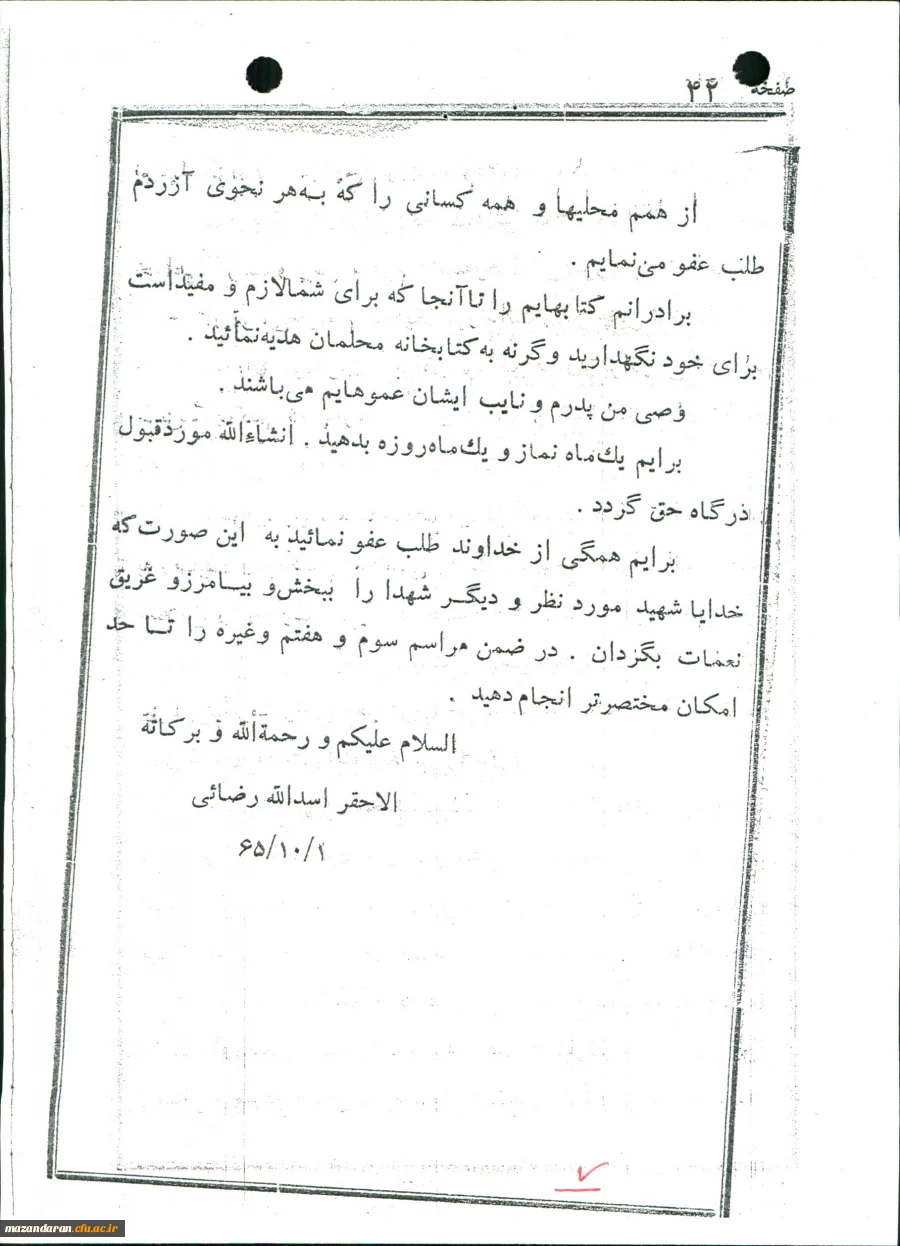 صفحه ۴۴
از همم محلیها و همه کسانی را که به‌هر نحوی آزردم
طلب عفو می‌نمایم .
برادرانم کتابهایم را تاآنجا که برای شمالازم و مفیداست
برای خود نگهدارید وگرنه به‌کتابخانه محلمان هدیه‌نمائید .
وصی من پدرم و نایب ایشان عموهایم می‌باشند .
برایم یك‌ماه نماز و یك‌ماه‌روزه بدهید . انشاءالله موردقبول
درگاه حق گردد .
برایم همگی از خداوند طلب عفو نمائید به این صورت‌که
خدایا شهید مورد نظر و دیگر شهدا را ببخش‌و بیامرزو غریق
نعمات بگردان . در ضمن مراسم سوم و هفتم وغیره را تا حد
امکان مختصرتر انجام‌دهید .
السلام علیکم و رحمةالله و برکاته
الاحقر اسدالله رضائی
۶۵/۱۰/۱
mazandaran.cfu.ac.ir